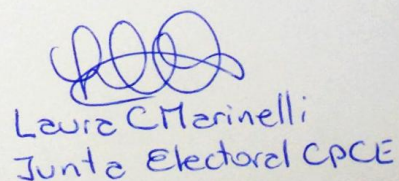 Laura C Marinelli
Junta Electoral CPCE